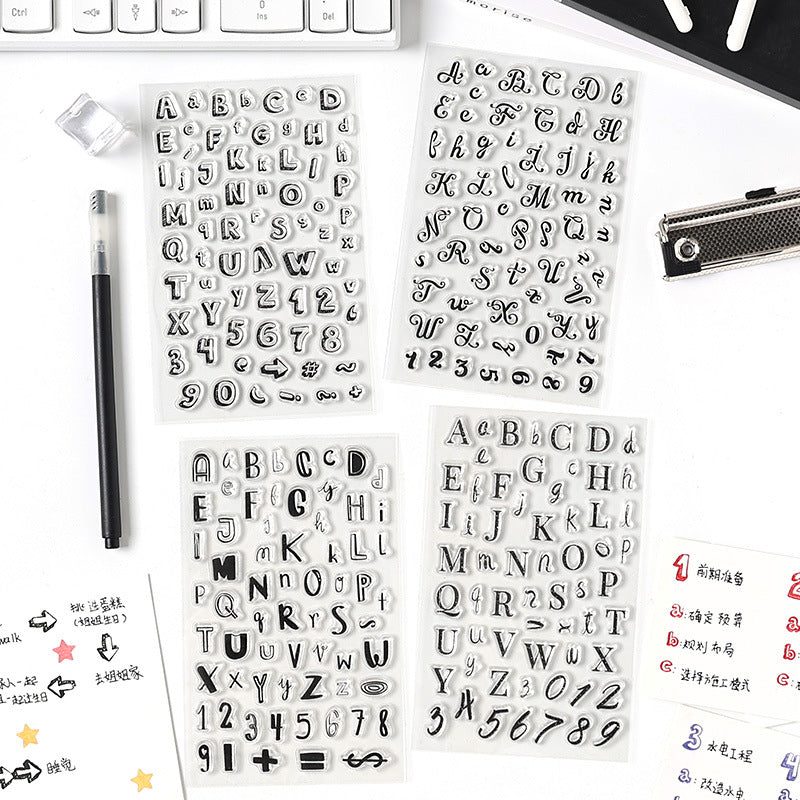 Ctrl
0
Ins
Del
A a B b C c D
E e F f G g H d
I j J K k L l h
M m N n O o P
Q q R r S s p x
T t U Λ W w z
X u Y y Z 1 2 v
3 4 5 6 7 8
c → # ~
9 0 ! ? +
A a B C D b
E c e F G d H
f h g i I J j k
K L l M m n
N a O o P p Q
s R q S t U u z
T w X x v
W Z y o Y y
1 2 3 5 6 8 9
A a B b C c D d
E e F f G g y H i
I J j h K k L l
M n N n O o P t
p Q q R r S s
T U u V v w W
X x Y y Z z
1 2 3 4 5 6 7 8
9 1 + = $
A a B b C c D d
E e F f G g H h
I i J j K k L l
M m N n O o P p
Q q R r S s t T
U u V v W w X x
Y y Z 3 0 1 2
3 4 5 6 7 8 9
挑选蛋糕
(姐姐生日)
walk
去姐姐家
一起过生日
睡觉
1 前期准备
a: 确定预算
b: 规划布局
c: 选择施工模式
2
a:
b:
c:
3 水电工程
a: 改造水电
4
a: